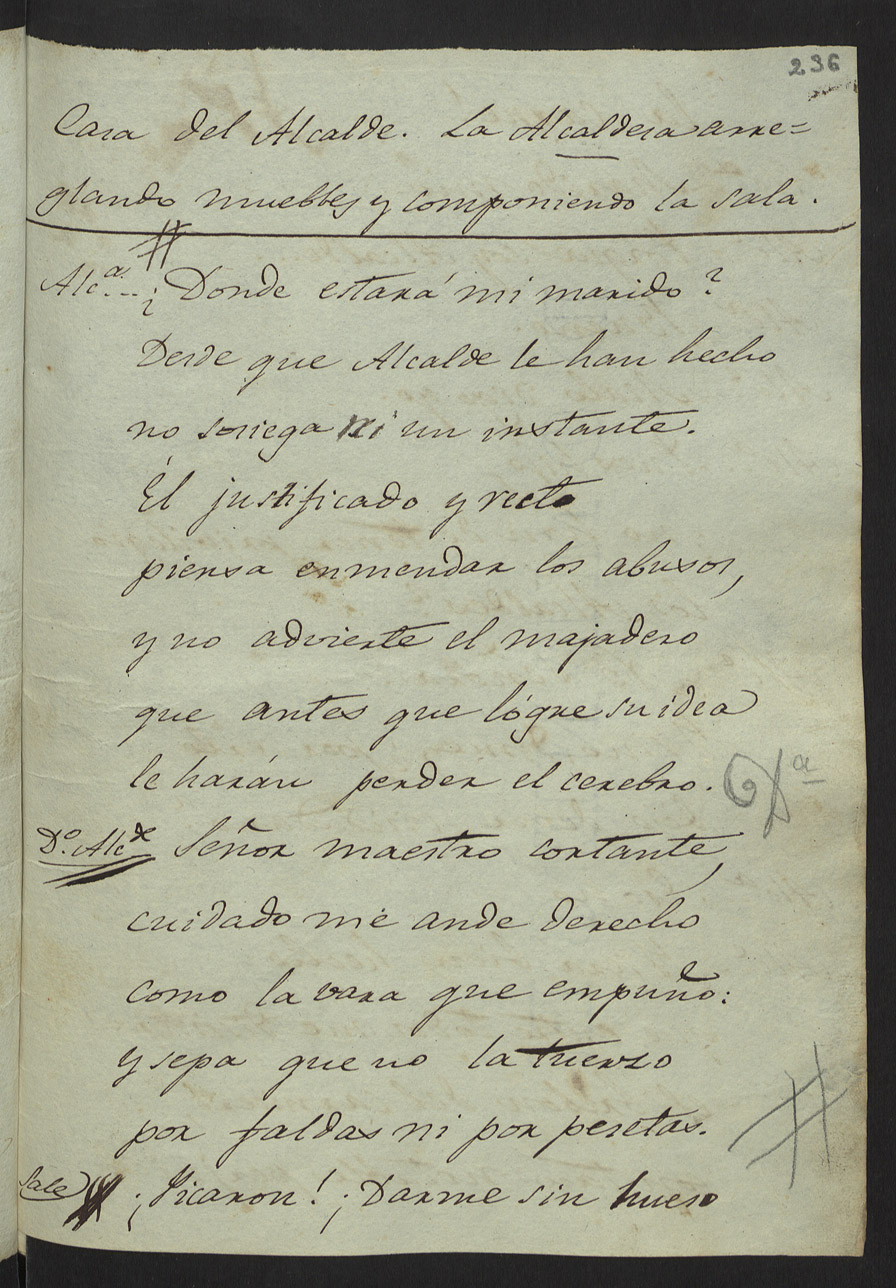 236
Casa del Alcalde. La Alcaldesa arre=
glando muebles y componiendo la sala.
#
Alc.ª... ¿Donde estará mi marido?
Desde que Alcalde le han hecho
no sosiega ni un instante.
Él justificado y recto
piensa enmendar los abusos,
y no advierte el majadero
que antes que lógre su idea
le harán perder el cerebro.
D.º Alc.e Señor maestro cortante,
cuidado me ande derecho
como la vara que empuño:
y sepa que no la tuerzo
por faldas ni por pesetas.
#
Sale ¡Picaron! ¡Darme sin hueso